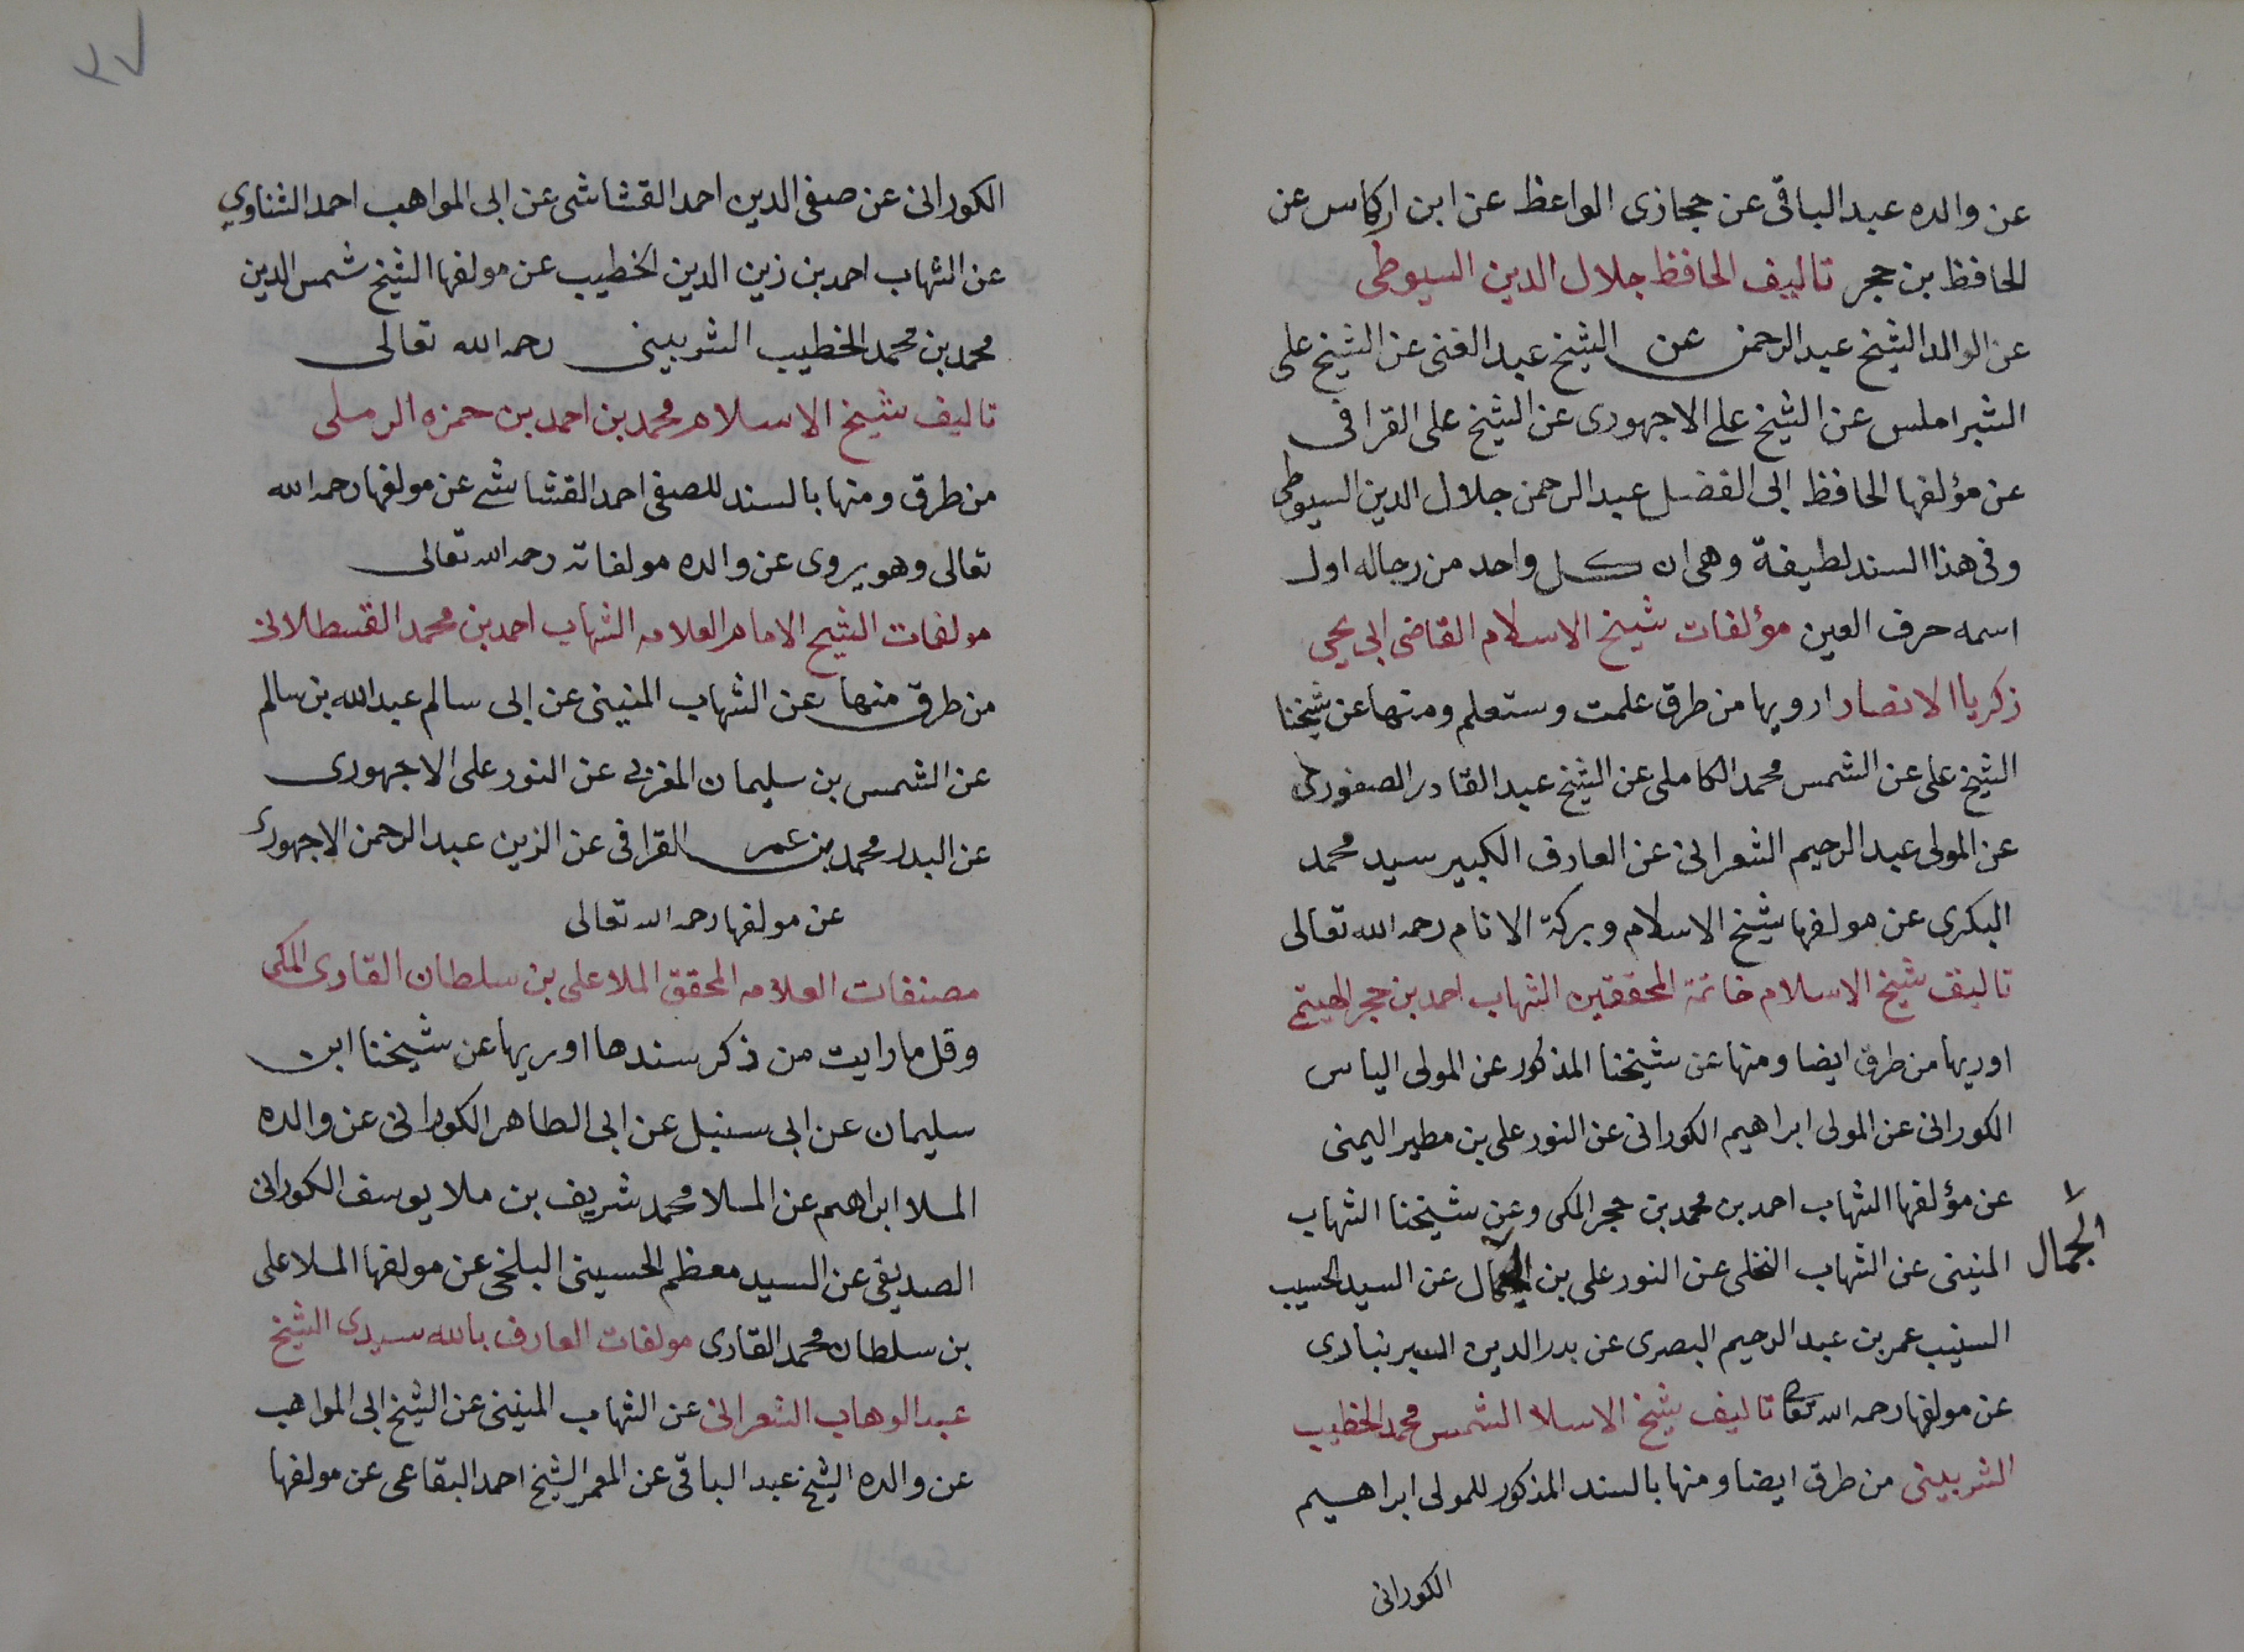 عن والده عبد الباقى عن حجازى الواعظ عن ابن اركاس عن
الحافظ بن حجر تاليف الحافظ جلال الدين السيوطى
عن الوالد الشيخ عبد الرحمن عن الشيخ عبد الغنى عن الشيخ على
الشبراملس عن الشيخ على الاجهورى عن الشيخ على القرافى
عن مؤلفها الحافظ ابى الفضل عبد الرحمن جلال الدين السيوطى
وفى هذا السند لطيفة وهى ان كل واحد من رجاله اول
اسمه حرف العين مؤلفات شيخ الاسلام القاضى ابى يحيى
زكريا الانصار ارويها من طرق علمت وستعلم ومنها عن شيخنا
الشيخ على عن الشمس محمد الكاملى عن الشيخ عبد القادر الصفورى
عن المولى عبد الرحيم الشعرانى عن العارف الكبير سيد محمد
البكرى عن مولفها شيخ الاسلام وبركة الانام رحمه الله تعالى
تاليف شيخ الاسلام خاتمة المحققين الشهاب احمد بن حجر الهيتمى
اوريها من طرق ايضا ومنها عن شيخنا المذكور عن المولى الياس
الكورانى عن المولى ابراهيم الكورانى عن النور على بن مطير اليمنى
عن مؤلفها الشهاب احمد بن محمد بن حجر المكى وعن شيخنا الشهاب
المنينى عن الشهاب النخلى عن النور على بن الجمال عن السيد الحسيب
الجمال
السنيب عمر بن عبد الرحيم البصرى عن بدر الدين البرنبادى
عن مولفها رحمه الله تعالى تاليف شيخ الاسلا الشمس محمد الخطيب
الشربينى من طرق ايضا ومنها بالسند المذكور للمولى ابراهيم
الكورانى
٣٧
الكورانى عن صفى الدين احمد القشاشى عن ابى المواهب احمد الشناوي
عن الشهاب احمد بن زين الدين الخطيب عن مولفها الشيخ شمس الدين
محمد بن محمد الخطيب الشربينى رحمه الله تعالى
تاليف شيخ الاسلام محمد بن احمد بن حمزه الرملى
من طرق ومنها بالسند للصفى احمد القشاشى عن مولفها رحمه الله
تعالى وهو يروى عن والده مولفاته رحمه الله تعالى
مولفات الشيح الامام العلامه الشهاب احمد بن محمد القسطلانى
من طرق منها عن الشهاب المنينى عن ابى سالم عبد الله بن سالم
عن الشمس بن سليمان المغربى عن النور على الاجهورى
عن البدر محمد بن عمر القرافى عن الزين عبد الرحمن الاجهورى
عن مولفها رحمه الله تعالى
مصنفات العلامه المحقق الملا على بن سلطان القارى المكى
وقل ما رايت من ذكر سندها اوريها عن شيخنا ابن
سليمان عن ابى سنبل عن ابى الطاهر الكورانى عن والده
الملا ابراهيم عن الملا محمد شريف بن ملا يوسف الكورانى
الصديقى عن السيد معظم الحسينى البلخى عن مولفها الملا على
بن سلطان محمد القارى مولفات العارف بالله سيدى الشيخ
عبد الوهاب الشعرانى عن الشهاب المنينى عن الشيخ ابى المواهب
عن والده الشيخ عبد الباقى عن المعمر الشيخ احمد البقاعى عن مولفها